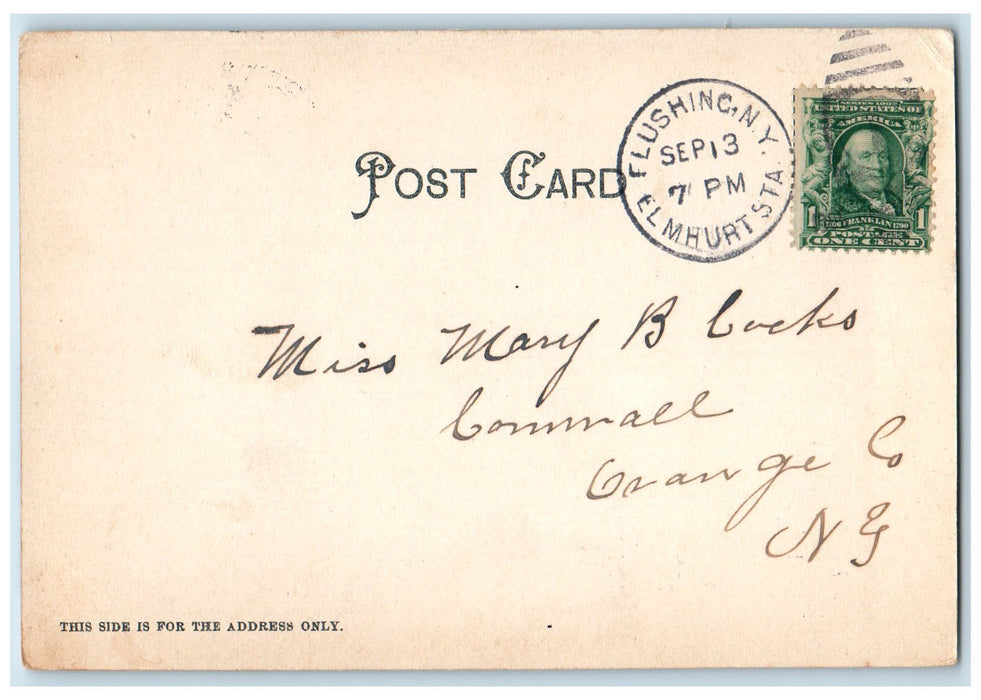 POST CARD
FLUSHING, N.Y.
SEP 13
7 PM
ELMHURT STA.
SERIES 1902
UNITED STATES OF
AMERICA
1706 FRANKLIN 1790
1 POSTAGE 1
ONE CENT
Miss Mary B Cocks
Cornwall
Orange Co
N Y
THIS SIDE IS FOR THE ADDRESS ONLY.